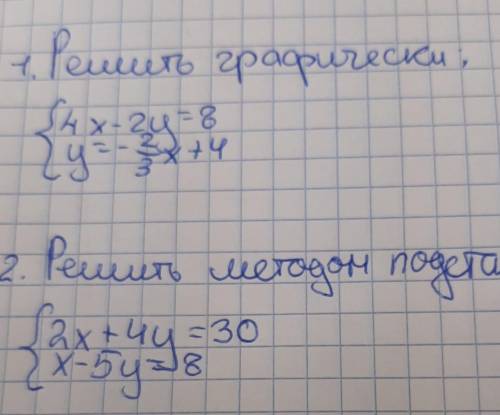 1. Решить графически:
4x-2y=8
y=-2/3x+4
2. Решить методом
2x+4y=30
x-5y=8